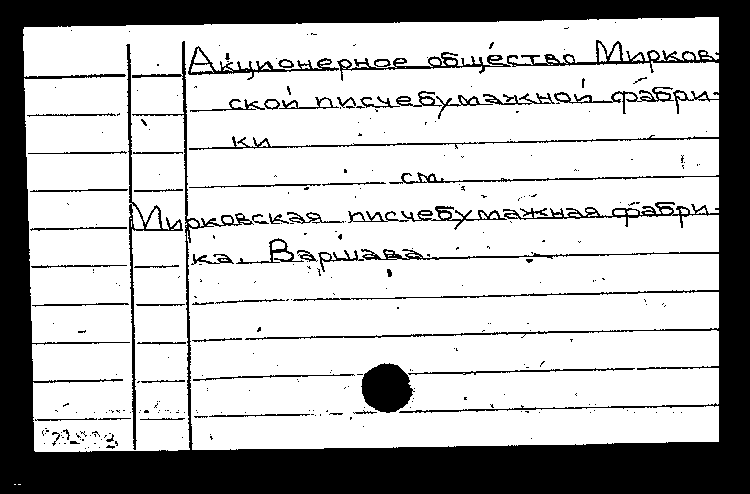 Акционерное общество Мирков-
ской писчебумажной фабри-
ки
см.
Мирковская писчебумажная фабри-
ка. Варшава.